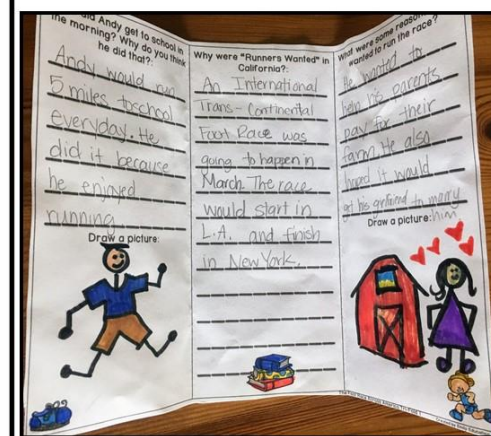 did Andy get to school in
the morning? Why do you think
he did that?:
Andy would run
5 miles to school
everyday. He
did it because
he enjoyed
running
Draw a picture:
Why were "Runners Wanted" in
California?:
An International
Trans-Continental
Foot Race was
going to happen in
March. The race
would start in
L.A. and finish
in New York.
What were some reasons
wanted to run the race?
He wanted to
help his parents
pay for their
farm. He also
hoped it would
get his girlfriend to marry
him
Draw a picture: